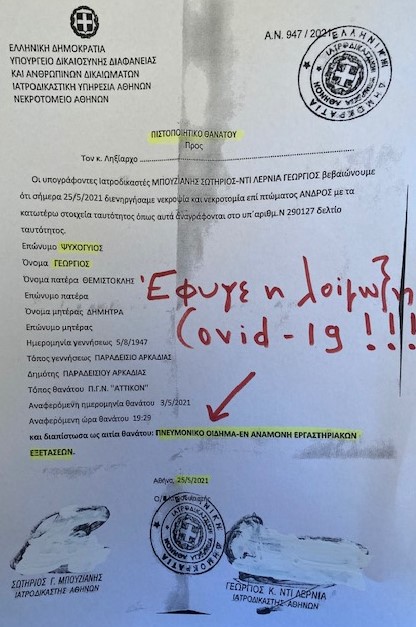 Α.Ν. 947 / 2021
ΕΛΛΗΝΙΚΗ ΔΗΜΟΚΡΑΤΙΑ
ΥΠΟΥΡΓΕΙΟ ΔΙΚΑΙΟΣΥΝΗΣ ΔΙΑΦΑΝΕΙΑΣ
ΚΑΙ ΑΝΘΡΩΠΙΝΩΝ ΔΙΚΑΙΩΜΑΤΩΝ
ΙΑΤΡΟΔΙΚΑΣΤΙΚΗ ΥΠΗΡΕΣΙΑ ΑΘΗΝΩΝ
ΝΕΚΡΟΤΟΜΕΙΟ ΑΘΗΝΩΝ
ΕΛΛΗΝΙΚΗ ΔΗΜΟΚΡΑΤΙΑ
ΠΙΣΤΟΠΟΙΗΤΙΚΟ ΘΑΝΑΤΟΥ
Προς
Τον κ. Ληξίαρχο
Οι υπογράφοντες Ιατροδικαστές ΜΠΟΥΖΙΑΝΗΣ ΣΩΤΗΡΙΟΣ-ΝΤΙ ΛΕΡΝΙΑ ΓΕΩΡΓΙΟΣ βεβαιώνουμε
ότι σήμερα 25/5/2021 διενεργήσαμε νεκροψία και νεκροτομία επί πτώματος ΑΝΔΡΟΣ με τα
κατωτέρω στοιχεία ταυτότητος όπως αυτά αναγράφονται στο υπ΄αριθμ. Ν 290127 δελτίο
ταυτότητος.
Επώνυμο ΨΥΧΟΓΥΙΟΣ
Όνομα ΓΕΩΡΓΙΟΣ
Όνομα πατέρα ΘΕΜΙΣΤΟΚΛΗΣ
Επώνυμο πατέρα
Όνομα μητέρας ΔΗΜΗΤΡΑ
Επώνυμο μητέρας
Έφυγε η λοίμωξη
Covid-19 !!!
Ημερομηνία γεννήσεως 5/8/1947
Τόπος γεννήσεως ΠΑΡΑΔΕΙΣΙΟ ΑΡΚΑΔΙΑΣ
Δημότης ΠΑΡΑΔΕΙΣΙΟΥ ΑΡΚΑΔΙΑΣ
Τόπος θανάτου Π.Γ.Ν. "ΑΤΤΙΚΟΝ"
Αναφερόμενη ημερομηνία θανάτου 3/5/2021
Αναφερόμενη ώρα θανάτου 19:29
και διαπίστωσα ως αιτία θανάτου: ΠΝΕΥΜΟΝΙΚΟ ΟΙΔΗΜΑ-ΕΝ ΑΝΑΜΟΝΗ ΕΡΓΑΣΤΗΡΙΑΚΩΝ
ΕΞΕΤΑΣΕΩΝ.
Αθήνα, 25/5/2021
ΣΩΤΗΡΙΟΣ Γ. ΜΠΟΥΖΙΑΝΗΣ
ΙΑΤΡΟΔΙΚΑΣΤΗΣ ΑΘΗΝΩΝ
ΓΕΩΡΓΙΟΣ Κ. ΝΤΙ ΛΕΡΝΙΑ
ΙΑΤΡΟΔΙΚΑΣΤΗΣ ΑΘΗΝΩΝ